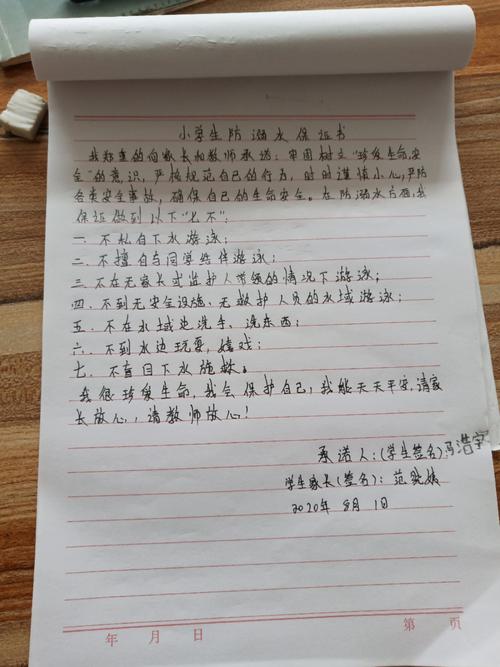 小学生防溺水保证书
我郑重的向家长和教师承诺：牢固树立“珍爱生命，安
全”的意识，严格规范自己的行为，时时谨慎小心，严防
各类安全事故，确保自己的生命安全。在防溺水方面，我
保证做到以下“七不”：
一、不私自下水游泳；
二、不擅自与同学结伴游泳；
三、不在无家长或监护人带领的情况下游泳；
四、不到无安全设施、无救护人员的水域游泳；
五、不在水域边洗手、洗东西；
六、不到水边玩耍、嬉戏；
七、不盲目下水施救。
我很珍爱生命，我会保护自己，我能天天平安，请家
长放心，请教师放心！
承诺人：(学生签名)冯浩宇
学生家长(签名)：范
2020年8月1日
年 月 日
第 页